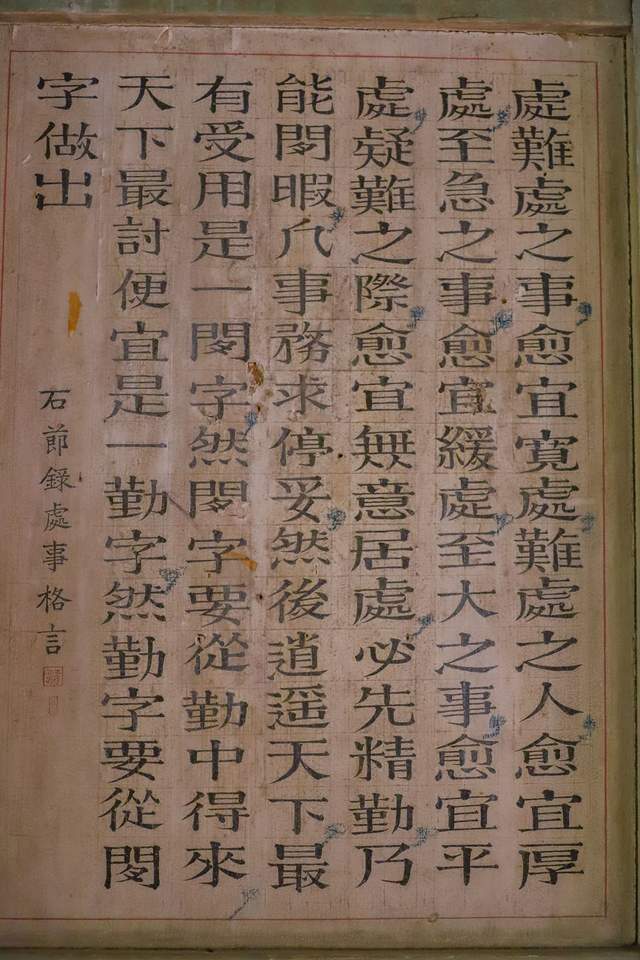 處難處之事愈宜寬處難處之人愈宜厚
處至急之事愈宜緩處至大之事愈宜平
處疑難之際愈宜無意居處必先精勤乃
能閒暇凡事務求停妥然後逍遥天下最
有受用是一閒字然閒字要從勤中得來
天下最討便宜是一勤字然勤字要從閒
字做出
石節錄處事格言